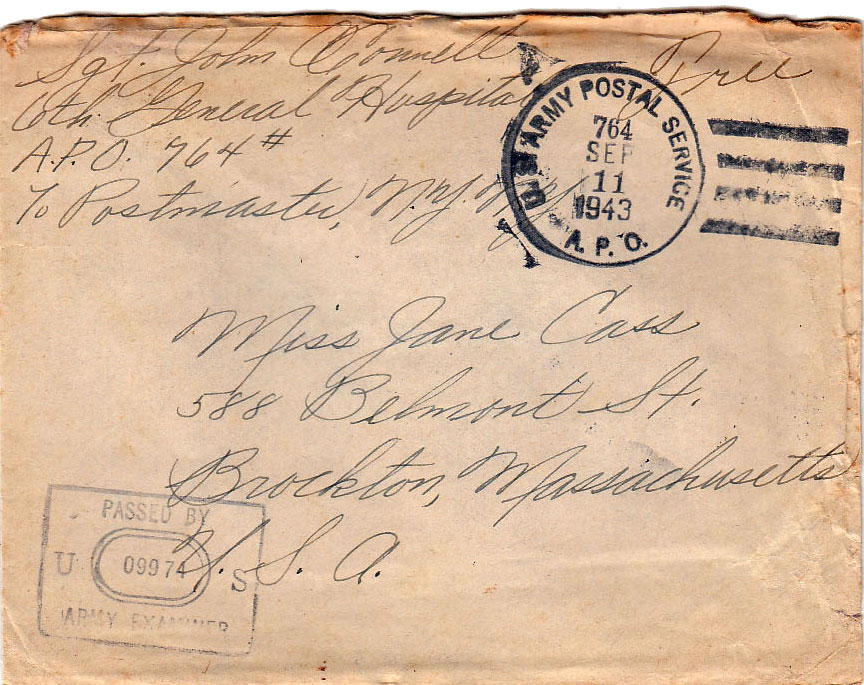 Sgt. John O'Connell Free
6th General Hospital
A.P.O. 764 #
℅ Postmaster, N.Y. N.Y.
U.S. ARMY POSTAL SERVICE
764
SEP
11
1943
A.P.O.
Miss Jane Cass
588 Belmont St.
Brockton, Massachusetts
U. S. A.
PASSED BY
U 09974 S
ARMY EXAMINER